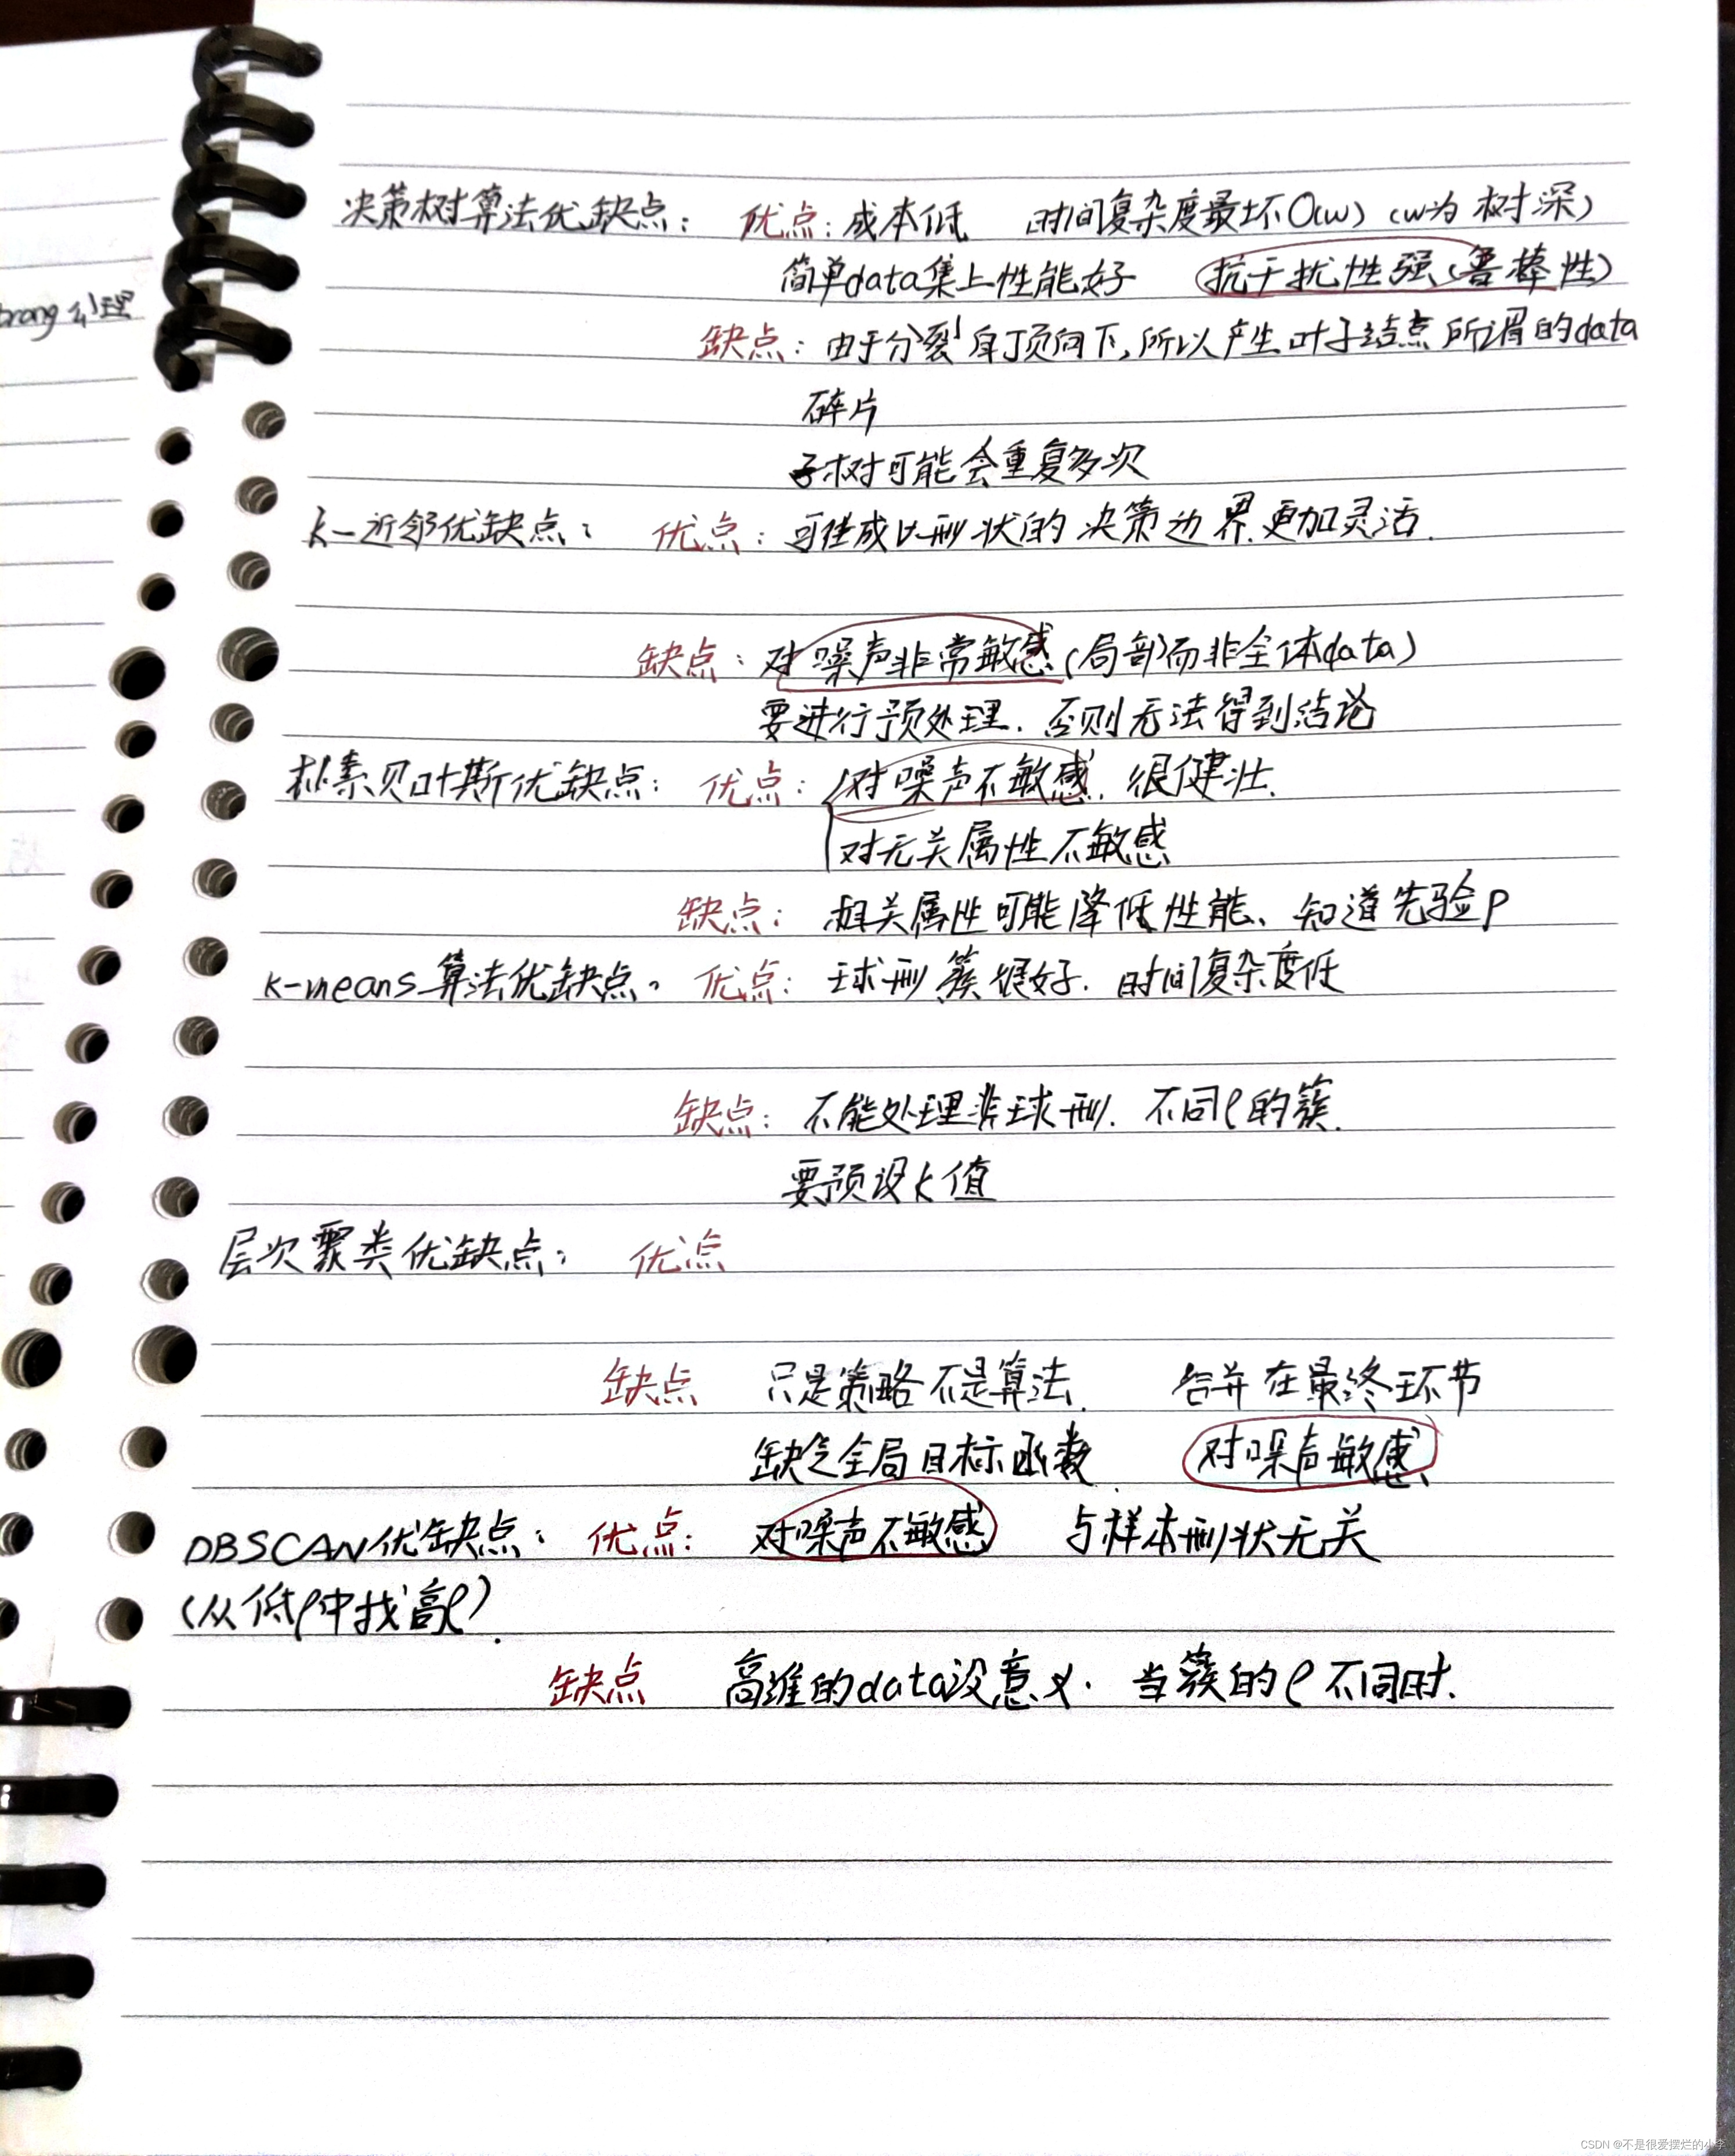 决策树算法优缺点： 优点：成本低 时间复杂度最坏O(w)（w为树深）
简单data集上性能好 抗干扰性强（鲁棒性）
rong 公理
缺点：由于分裂自顶向下，所以产生叶子结点所谓的data
碎片
子树可能会重复多次
k-近邻优缺点： 优点：可生成 形状的决策边界.更加灵活.
缺点：对噪声非常敏感（局部而非全体data）
要进行预处理.否则无法得到结论
朴素贝叶斯优缺点： 优点：对噪声不敏感.很健壮.
对无关属性不敏感
缺点：相关属性可能降低性能、知道先验p
k-means算法优缺点。 优点：球形簇很好.时间复杂度低
缺点：不能处理非球形.不同ρ的簇.
要预设k值
层次聚类优缺点： 优点
缺点 只是策略不是算法. 合并在最终环节
缺乏全局目标函数. 对噪声敏感、
DBSCAN优缺点： 优点：对噪声不敏感 与样本形状无关
（从低ρ中找高ρ）.
缺点 高维的data没意义.当簇的ρ不同时.
CSDN @不是很爱摆烂的小李